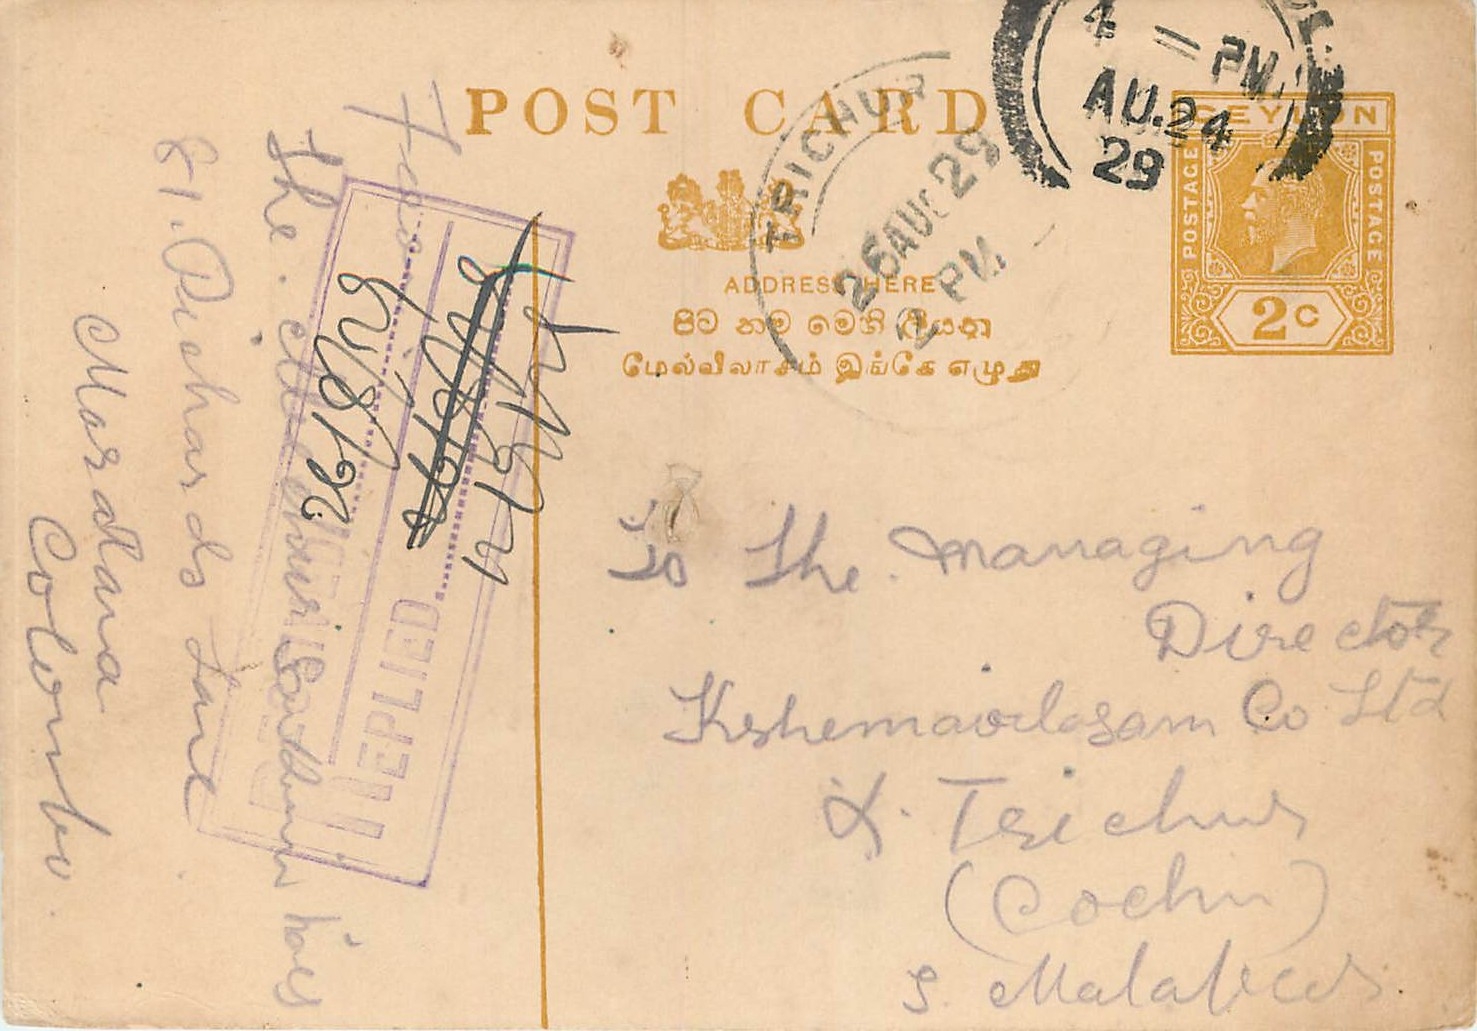 POST CARD
ADDRESS HERE
මේල්විලාසම්
மேல்விலாசம் இங்கே எழுது
CEYLON
POSTAGE
POSTAGE
2 C
4 - PM
AU.24
29
TRICHUR
26 AUG 29
2 PM
To The Managing
Director
Kshemavilasam Co Ltd
Trichur
(Cochin)
S. Malabar
From
The
81. Pichards Lane
Maradana
Colombo
REPLIED